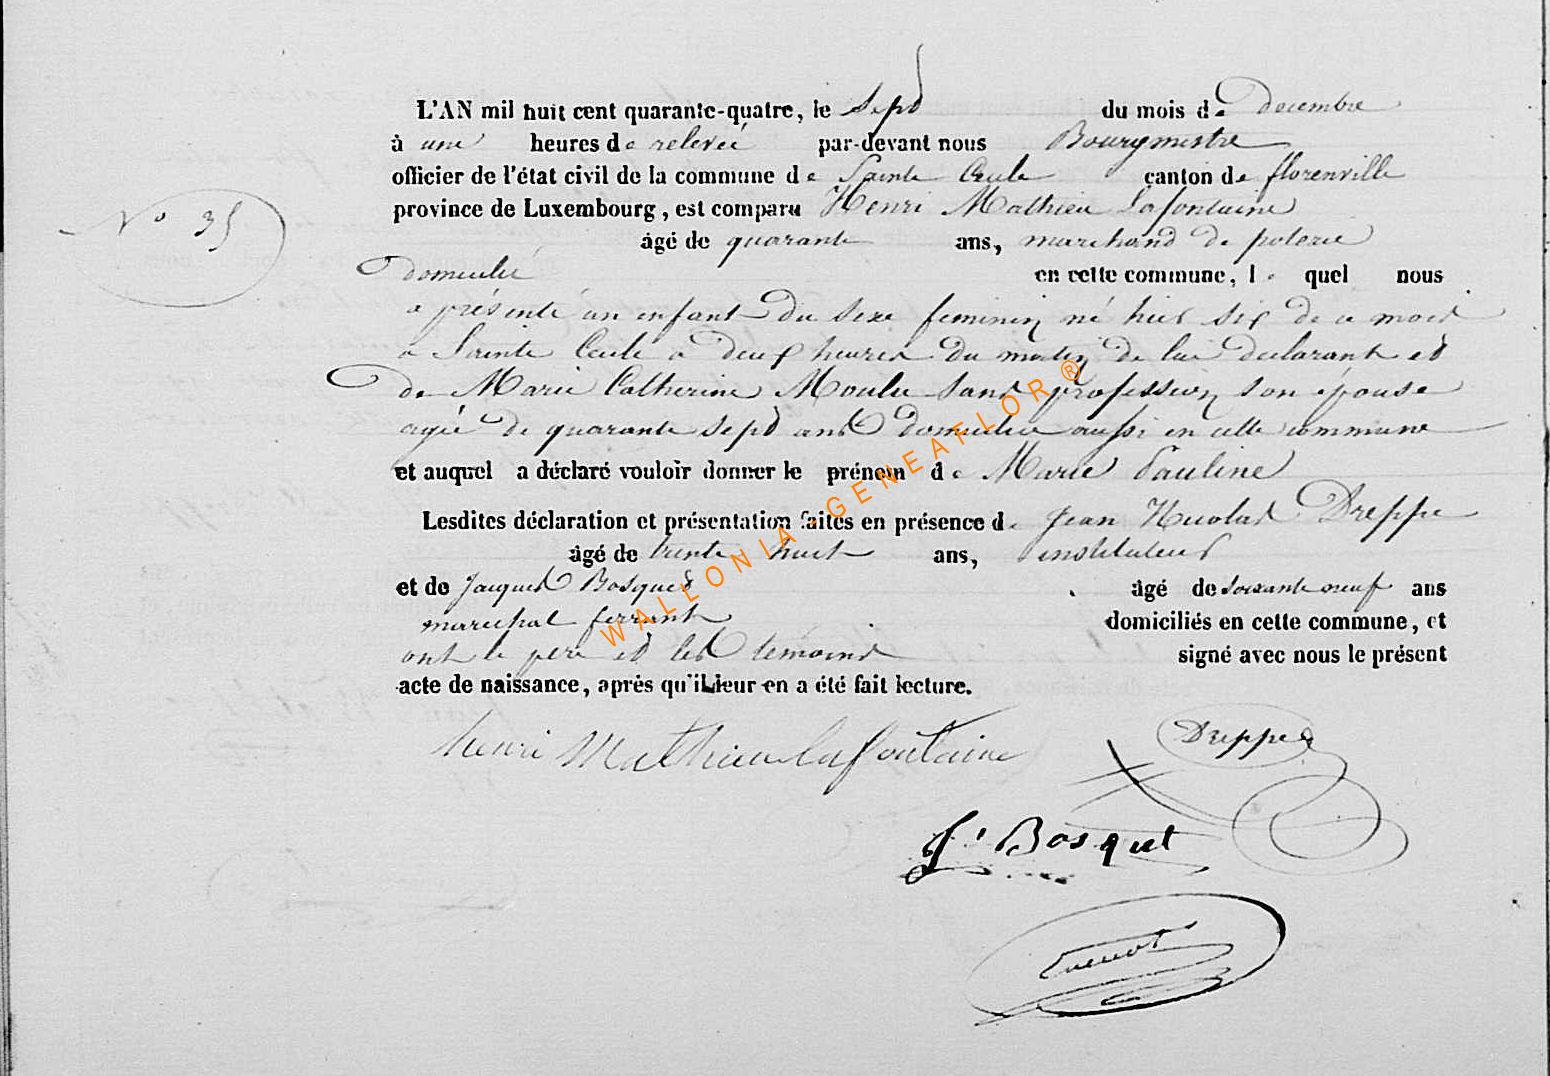 L'AN mil huit cent quarante-quatre, le sept du mois de decembre
à une heures de relevée par-devant nous Bourgmestre
officier de l'état civil de la commune de Sainte Cecile canton de florenville
N° 35
province de Luxembourg, est comparu Henri Mathieu Lafontaine
âgé de quarante ans, marchand de poterie
domicilié en cette commune, le quel nous
a présenté un enfant du sexe feminin né hier six de ce mois
a Sainte Cecile a deux heures du matin de lui declarant et
de Marie Catherine Moulu sans profession son épouse
agée de quarante sept ans domiciliée aussi en cette commune
et auquel a déclaré vouloir donner le prénom de Marie Pauline
Lesdites déclaration et présentation faites en présence de Jean Nicolas Dreppe
âgé de trente huit ans, instituteur
et de Jacques Bosquet âgé de soixante neuf ans
marechal ferrant domiciliés en cette commune, et
ont le pere et les témoins signé avec nous le présent
acte de naissance, après qu'il leur en a été fait lecture.
henri Mathieu lafontaine Dreppe
J. Bosquet
WALLONIA-GENEAFLOR®